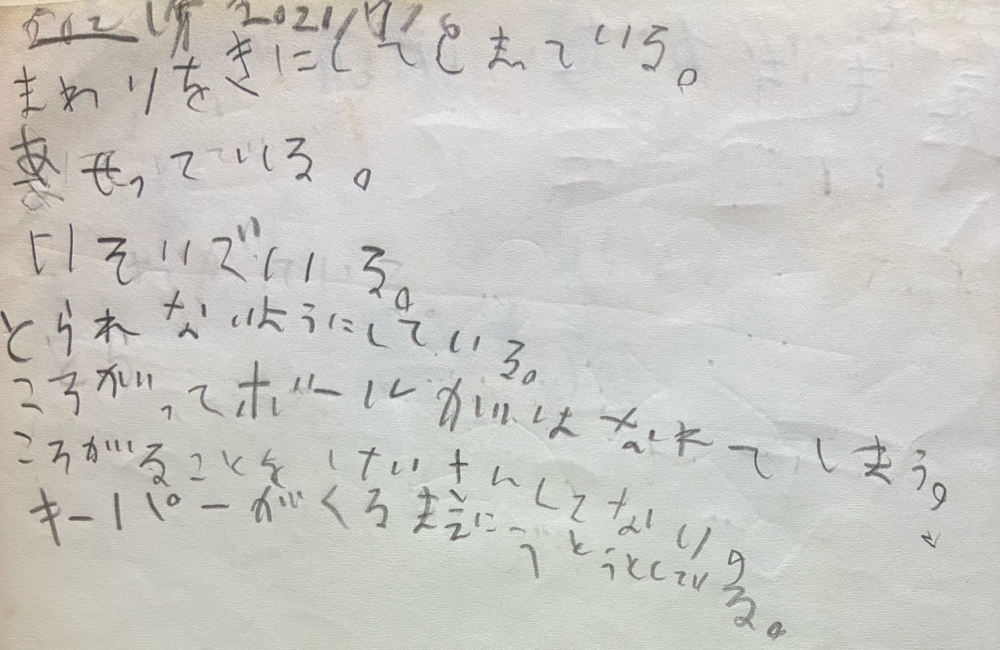 2021/7/8
まわりをきにしてとまっている。
あせっている。
いそいでいる。
とられないようにしている。
ころがってボールがはなれてしまう。
ころがることをけいさんしてない。
キーパーがくるまえにうとうとしている。